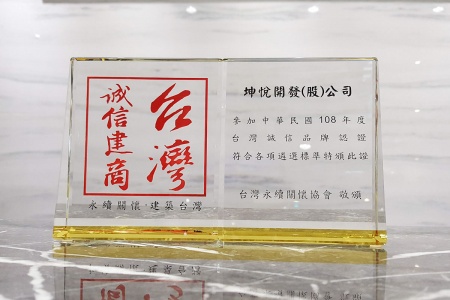 台灣
誠信建商
永續關懷·建築台灣
坤悅開發(股)公司
參加中華民國108年度
台灣誠信品牌認證
符合各項遴選標準特頒此證
台灣永續關懷協會 敬頒